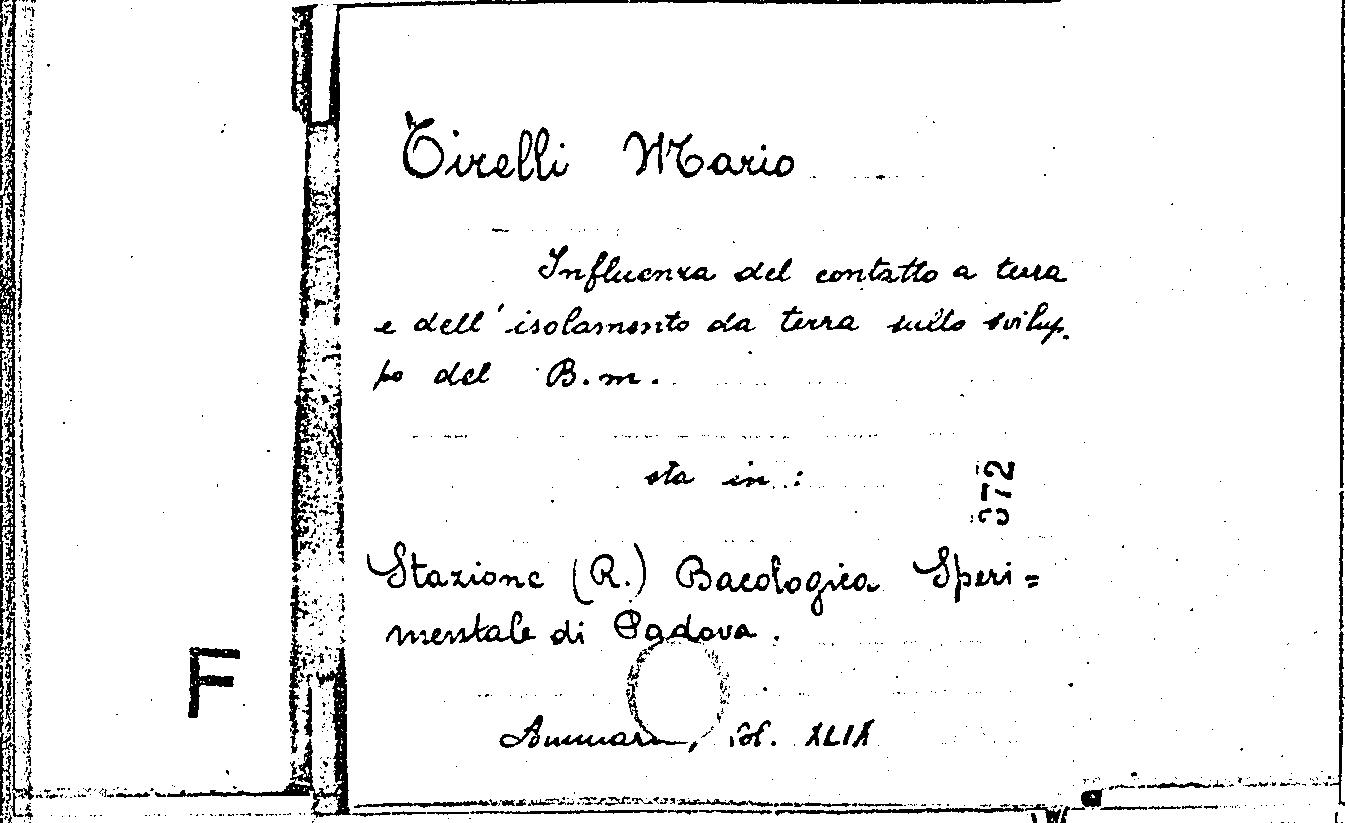 Tirelli Mario
Influenza del contatto a terra
e dell'isolamento da terra sullo svilup.
po del B.m.
sta in:
372
Stazione (R.) Bacologica Speri=
mentale di Padova.
F
Annuario, Vol. XLIX